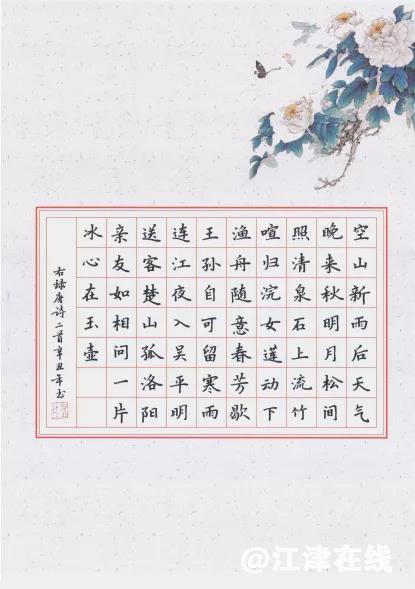 空山新雨后天气
晚来秋明月松间
照清泉石上流竹
喧归浣女莲动下
渔舟随意春芳歇
王孙自可留寒雨
连江夜入吴平明
送客楚山孤洛阳
亲友如相问一片
冰心在玉壶
右録唐诗二首辛丑年书
@江津在线